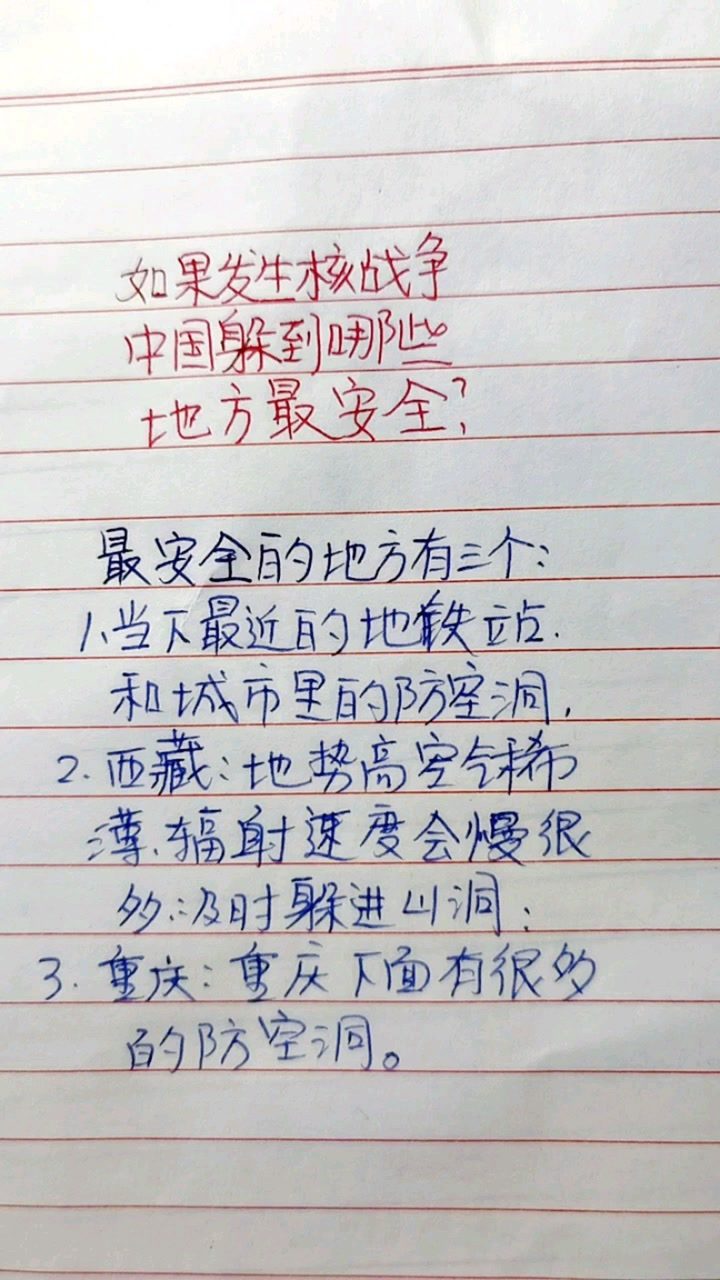 如果发生核战争
中国躲到哪些
地方最安全?
最安全的地方有三个:
1、当下最近的地铁站.
和城市里的防空洞,
2.西藏:地势高空气稀
薄、辐射速度会慢很
多.及时躲进山洞;
3.重庆:重庆下面有很多
的防空洞。